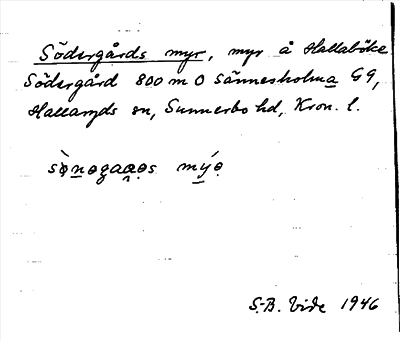 Södergårds myr, myr å Hallaböke
Södergård 800 m O Sännesholma G9,
Hallaryds sn, Sunnerbo hd, Kron. l.
S.-B. Vide 1946